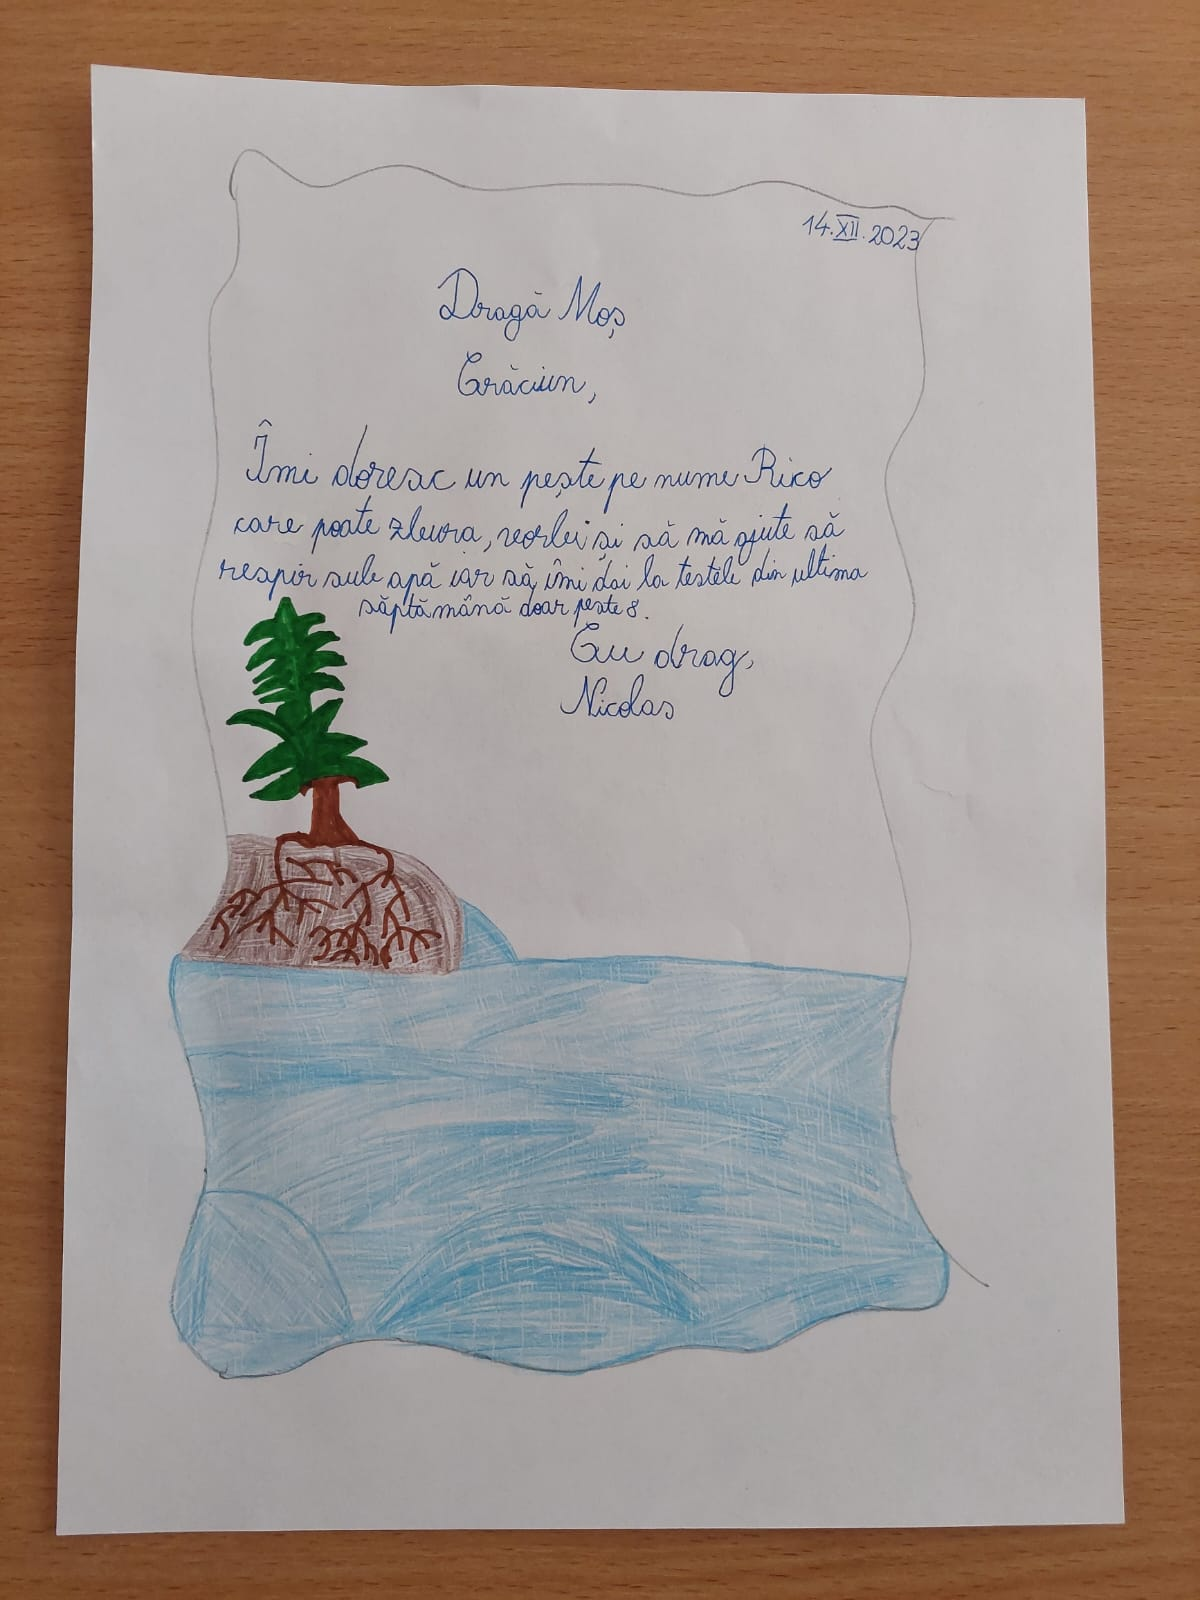 14.XII.2023
Dragă Moș
Crăciun,
Îmi doresc un pește pe nume Rico
care poate zbura, vorbi și să mă ajute să
respir sub apă iar să îmi dai la testele din ultima
săptămână doar peste 8.
Cu drag,
Nicolas